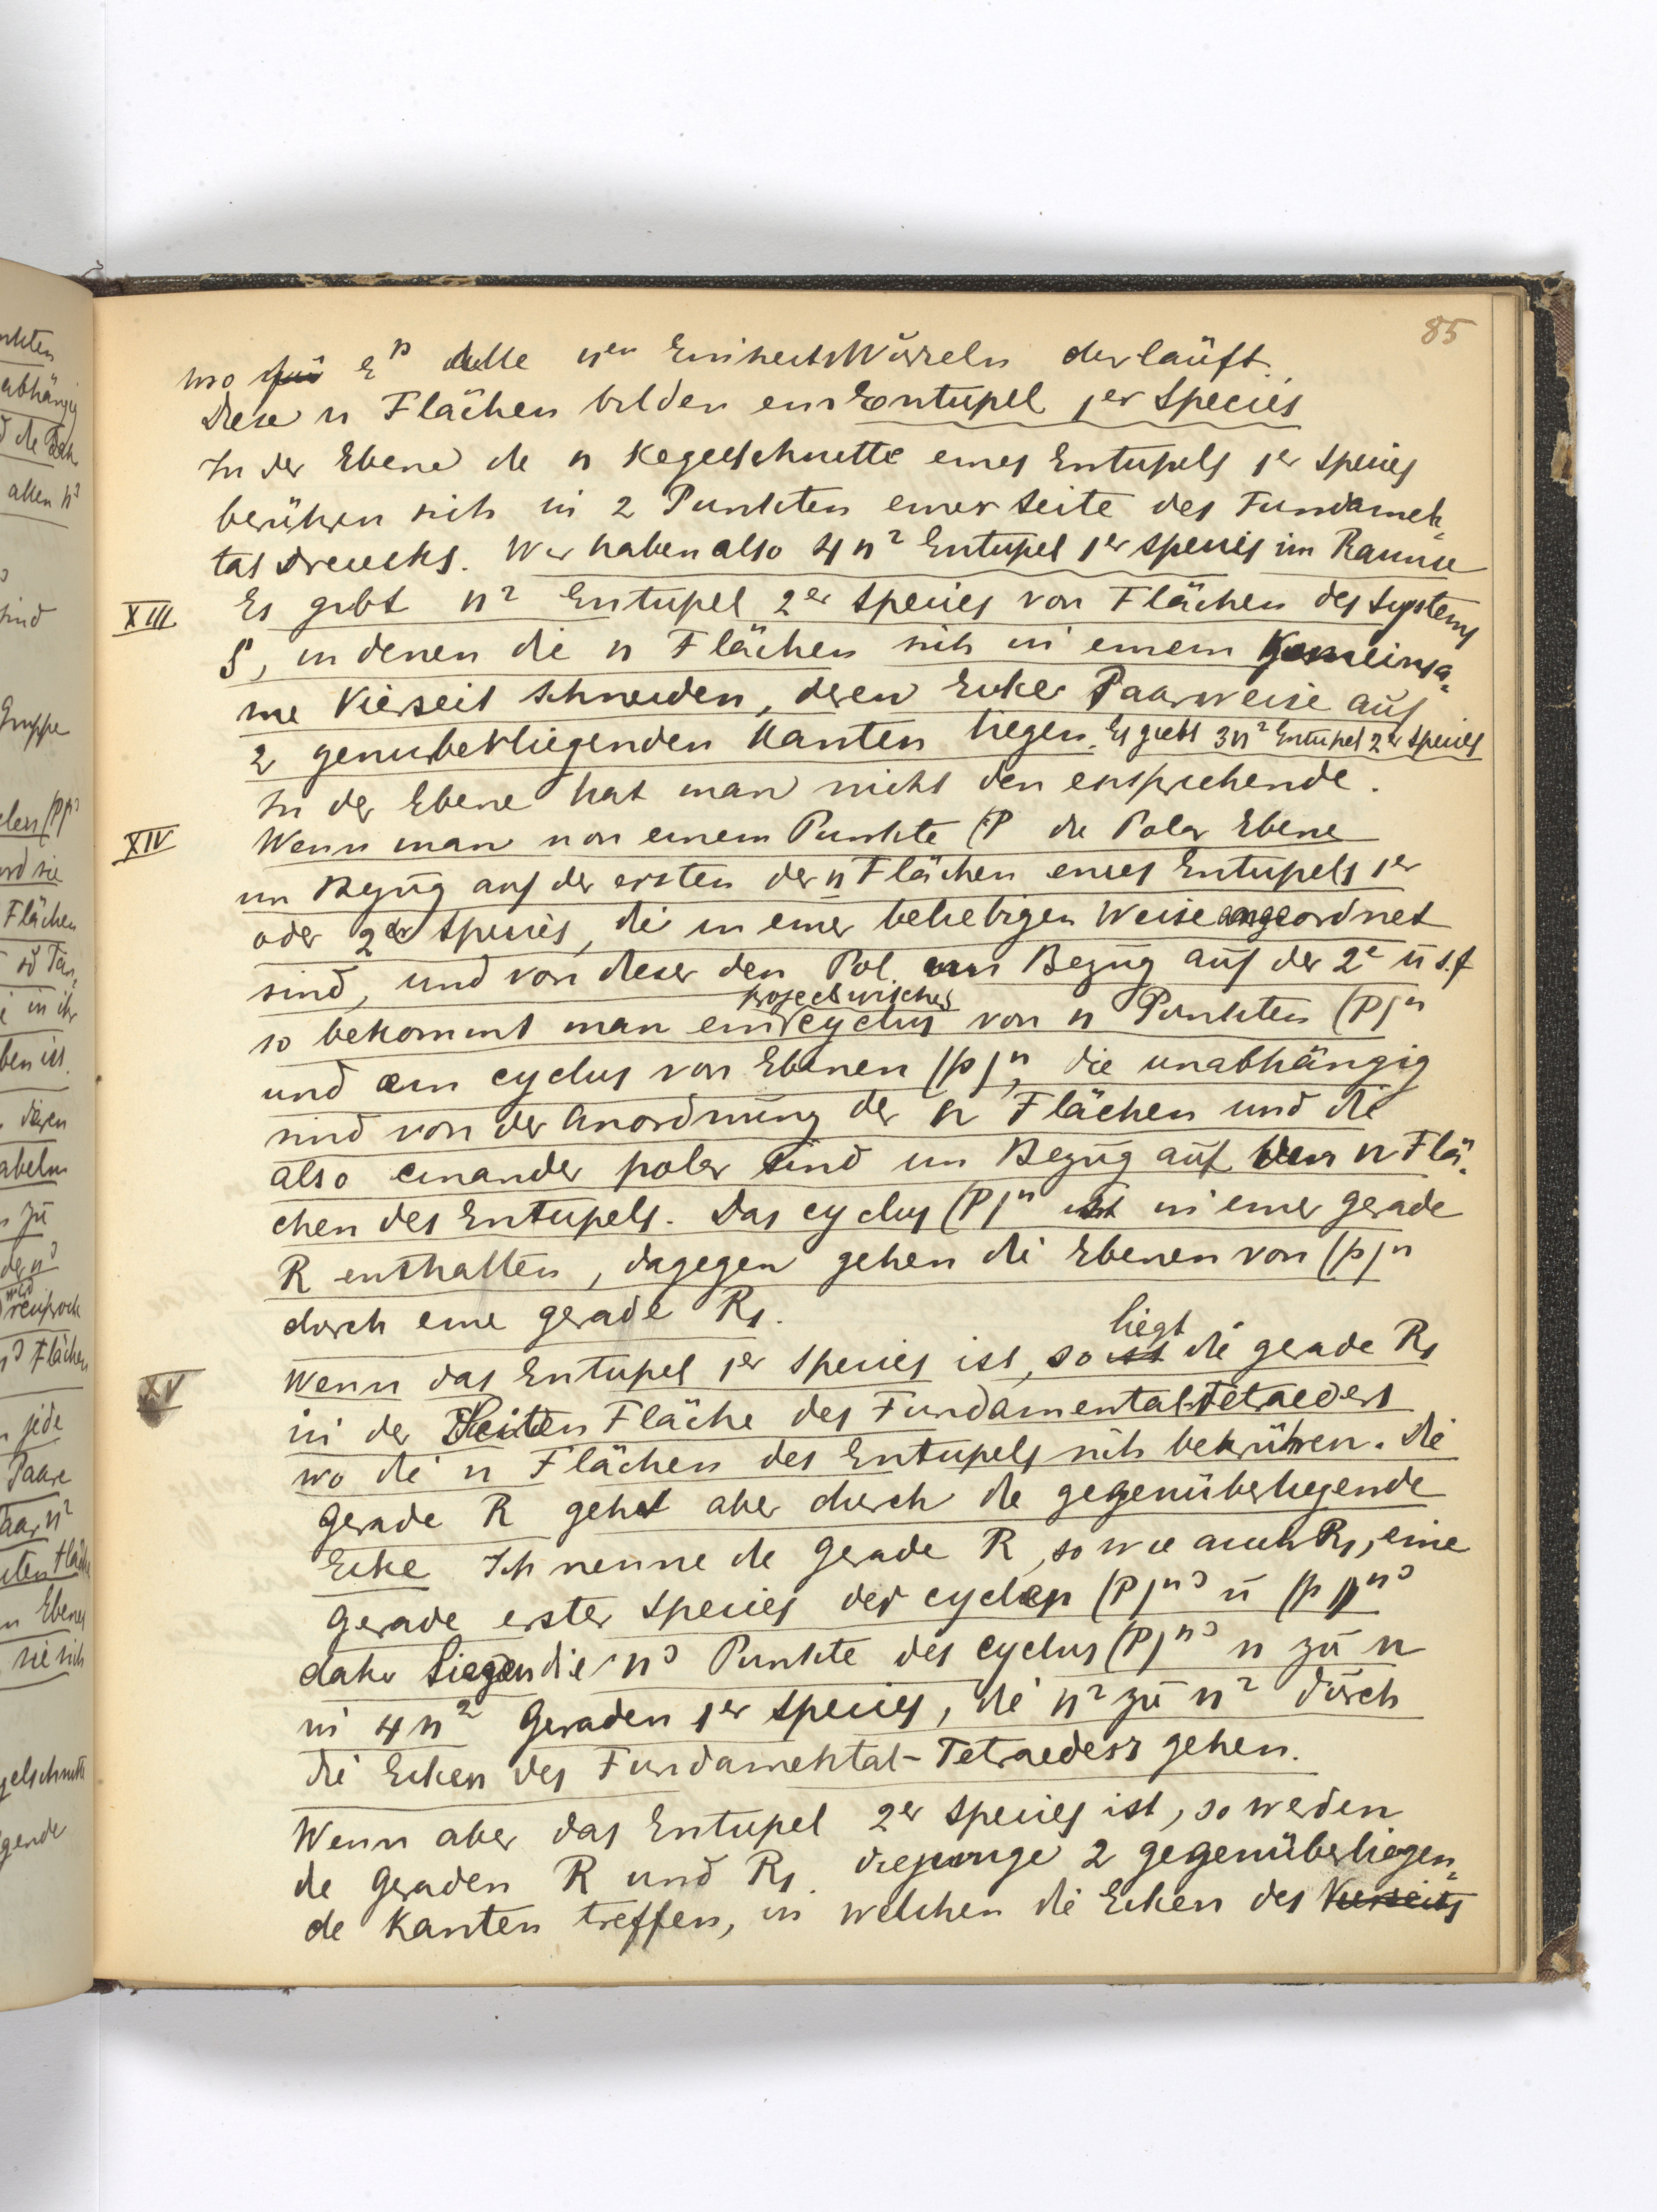 85
wo ε^p alle n^en Einheits Würzeln derläuft.
Diese n Flächen bilden ein Entupel 1^er Species
In der Ebene de n Kegelschnitte eines Entupels 1^er Species
berühren sich in 2 Punkten einer Seite des Fundamen=
tal Dreiecks. Wir haben also 4n² Entupel 1^er Species im Raume
XIII Es gibt n² Entupel 2^er Species von Flächen des Systems
S, in denen die n Flächen sich in einem Gemeinsa=
me Vierseit schneiden, deren Ecken Paarweise auf
2 genuberliegenden Kanten liegen. Es giebt 3n² Entupel 2^er Species
In der Ebene hat man nichts den ensprechende.
XIV Wenn man von einem Punkte (P die Polar Ebene
im Bezug auf der ersten der n Flächen eines Entupels 1^er
oder 2^er Species, die in einer beliebigen Weise angeordnet
sind, und von dieser den Pol im Bezug auf der 2^e u s.f
projectivischer
so bekommt man ein cyclus von n Punkten (P)^n
und ein cyclus von Ebenen (p)^n, die unabhängig
sind von der Anordnung der n Flächen und die
also einander polar sind im Bezug auf den n Flä=
chen des Entupels. Das cyclus (P)^n ist in einer gerade
R enthalten, dagegen gehen die Ebenen von (p)^n
durch eine gerade R₁.
liegt
XV Wenn das Entupel 1^er Species ist, so ist die gerade R₁
in der Seiten Fläche des Fundamental Tetraeders
wo die n Flächen des Entupels sich berühren. Die
Gerade R gehet aber durch die gegenüberliegende
Ecke Ich nenne die Gerade R, so wie auch R₁, eine
Gerade erster Species der cyclen (P)^n³ u (p)^n³
daher liegen die n³ Punkte des cyclus (P)^n³ n zu n
in 4n² Geraden 1^er Species, die n² zu n² durch
die Ecken des Fundamental-Tetraeders gehen.
Wenn aber das Entupel 2^er Species ist, so werden
de Geraden R und R₁ diejenige 2 gegenüberliegen=
de Kanten treffen, in welchen die Ecken des Vierseits